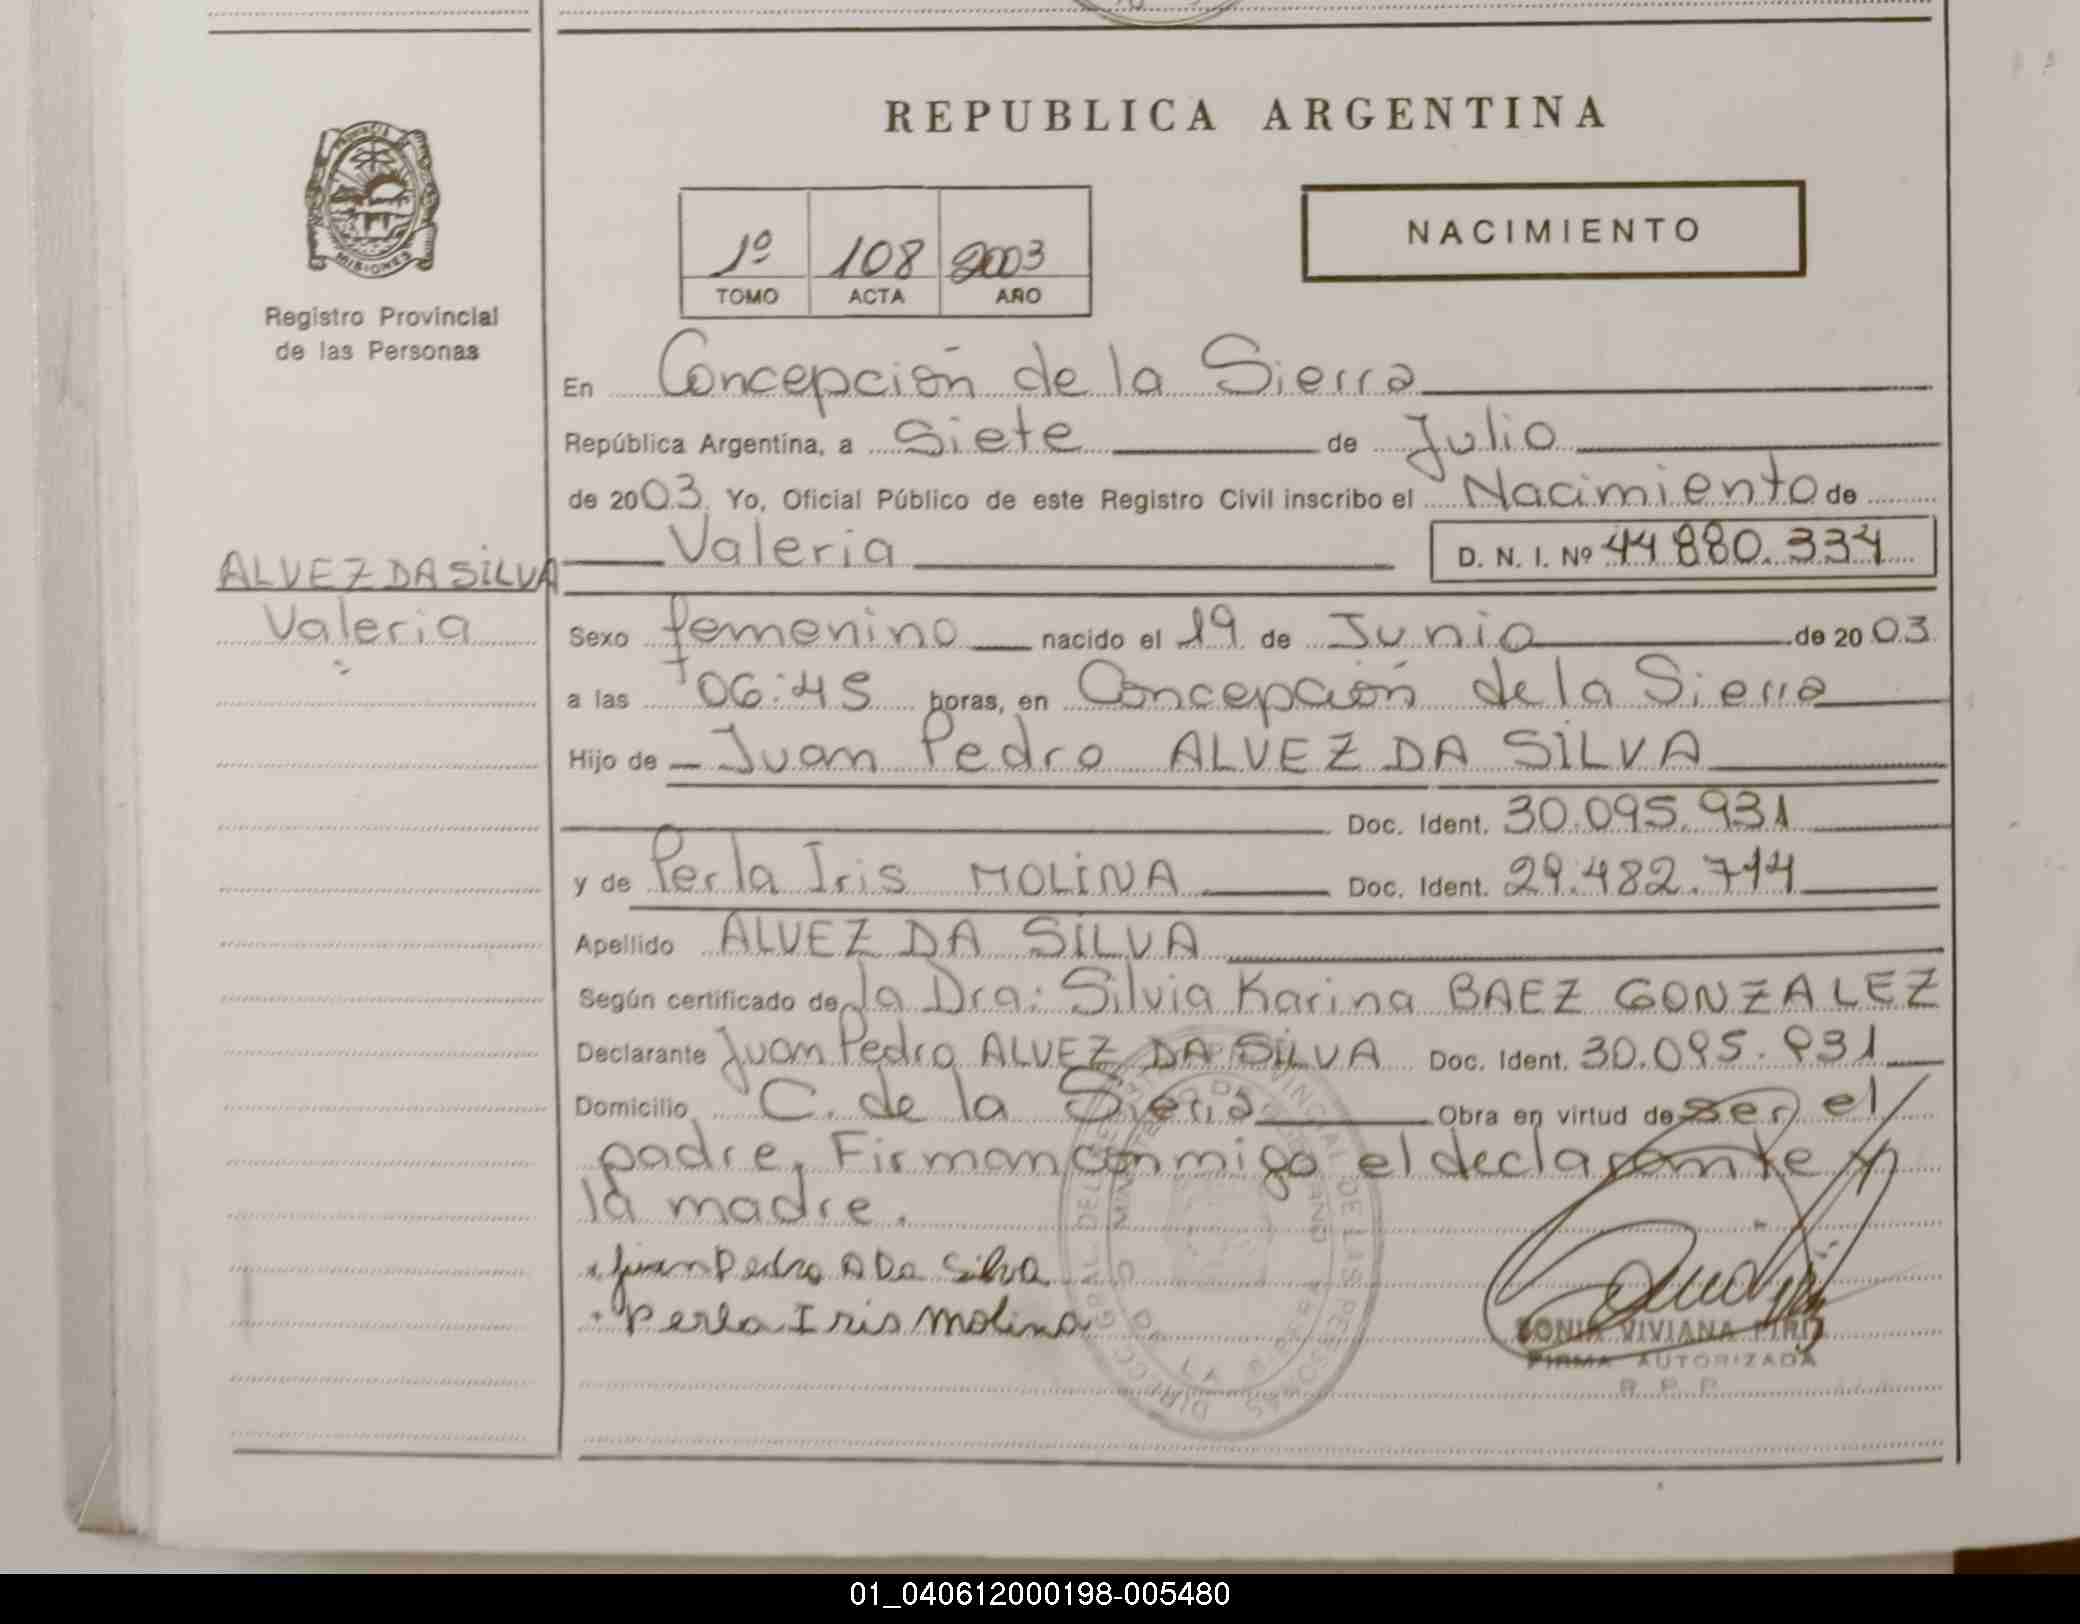 REPUBLICA ARGENTINA
PROVINCIA DE
MISIONES
Registro Provincial
de las Personas
1º 108 2003
TOMO ACTA AÑO
NACIMIENTO
En Concepción de la Sierra
República Argentina, a Siete de Julio
de 2003 Yo, Oficial Público de este Registro Civil inscribo el Nacimiento de
Valeria D. N. I. Nº 44.880.334
ALVEZ DA SILVA
Valeria
Sexo femenino nacido el 19 de Junio de 2003
a las 06:45 horas, en Concepción de la Sierra
Hijo de Juan Pedro ALVEZ DA SILVA
Doc. Ident. 30.095.931
y de Perla Iris MOLINA Doc. Ident. 29.482.714
Apellido ALVEZ DA SILVA
Según certificado de la Dra: Silvia Karina BAEZ GONZALEZ
Declarante Juan Pedro ALVEZ DA SILVA Doc. Ident. 30.095.931
Domicilio C. de la Sierra Obra en virtud de ser el
padre. Firman conmigo el declarante y
la madre.
Juan Pedro A Da Silva
Perla Iris Molina
SONIA VIVIANA
FIRMA AUTORIZADA
R. P. P.
01_040612000198-005480